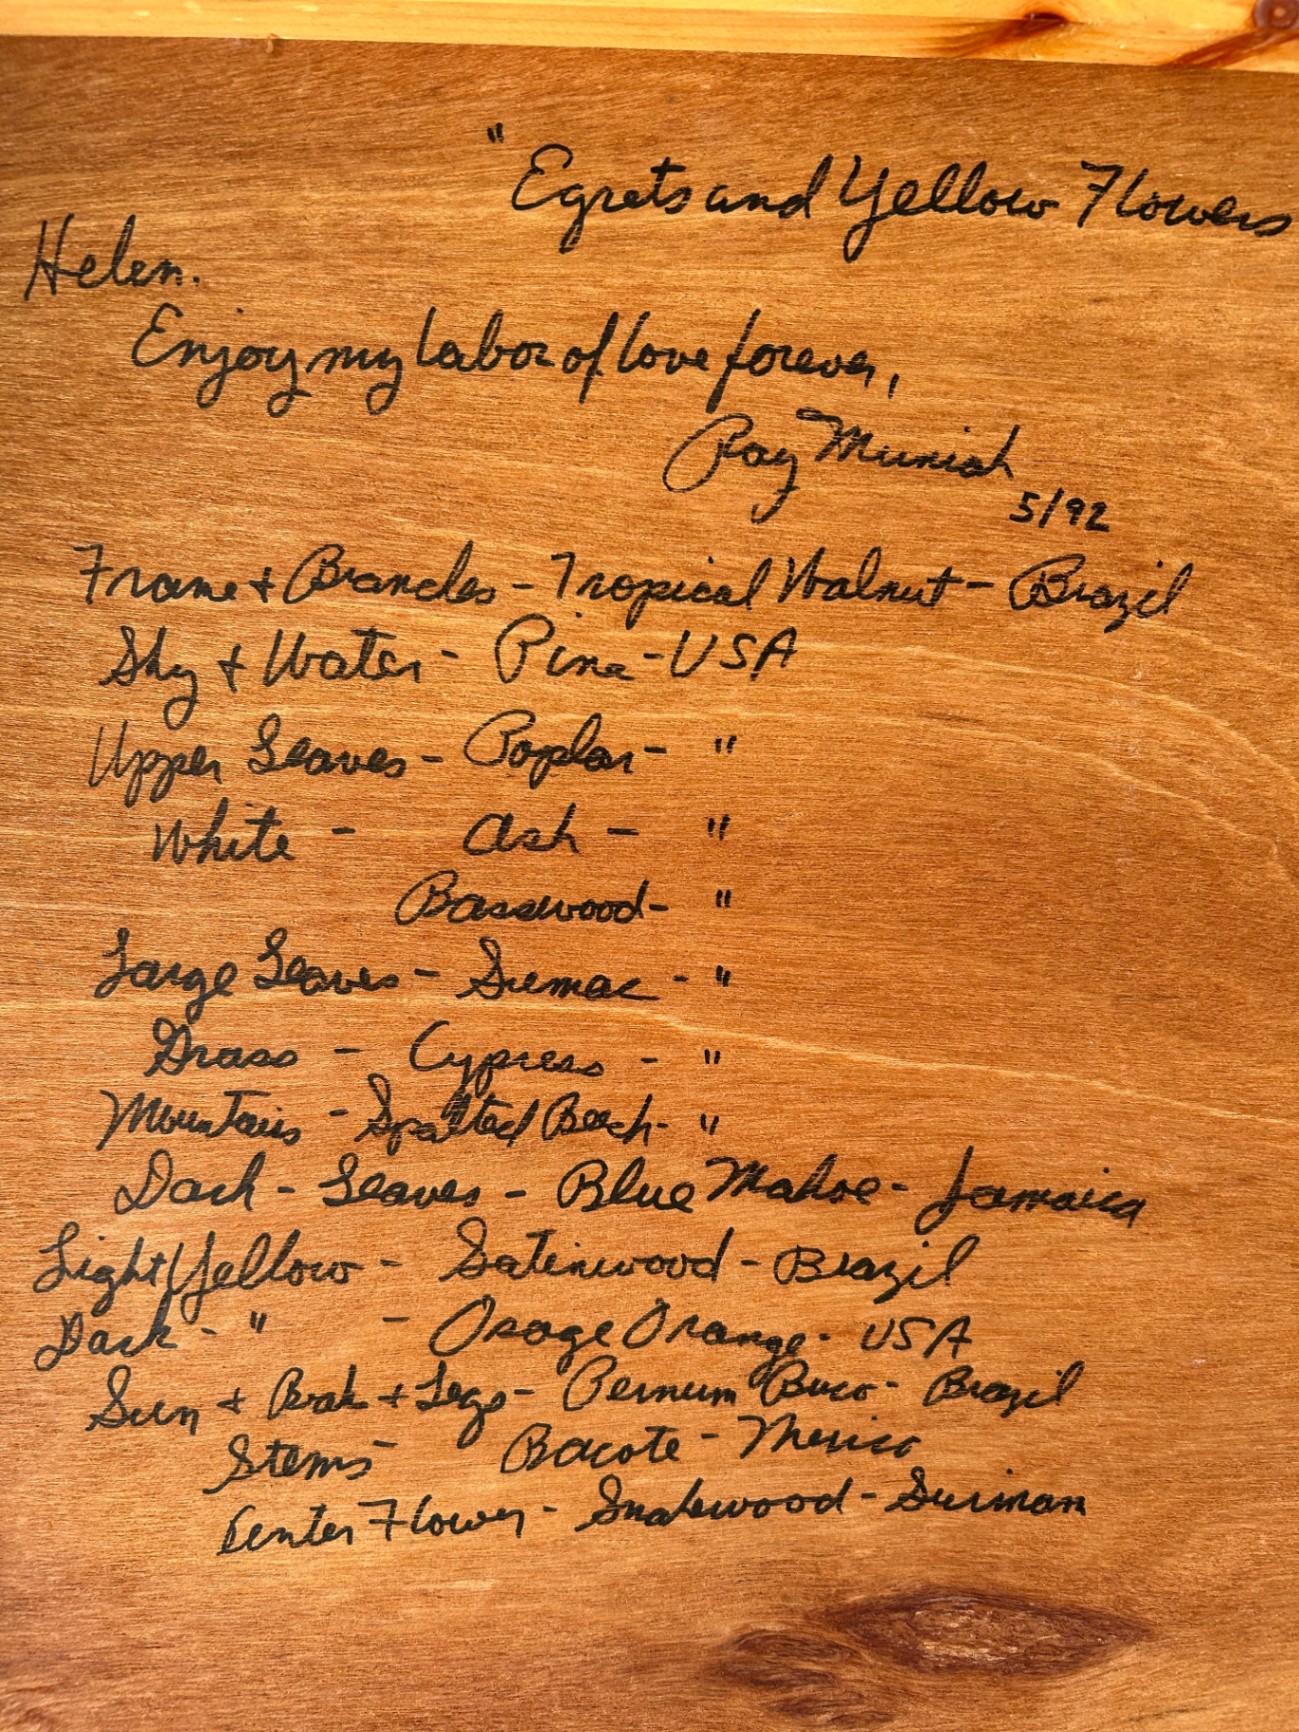 " Egrets and Yellow Flowers
Helen.
Enjoy my labor of love forever,
Ray Muniak
5/92
Frame + Branches - Tropical Walnut - Brazil
Sky + Water - Pine - USA
Upper Leaves - Poplar - "
White - Ash - "
Basswood - "
Large Leaves - Sumac - "
Grass - Cypress - "
Mountains - Spalted Beech - "
Dark - Leaves - Blue Mahoe - Jamaica
Light Yellow - Satinwood - Brazil
Dark - " - Osage Orange - USA
Sun + Beak + Legs - Pernum Buco - Brazil
Stems - Bocote - Mexico
Center Flower - Snakewood - Surinam